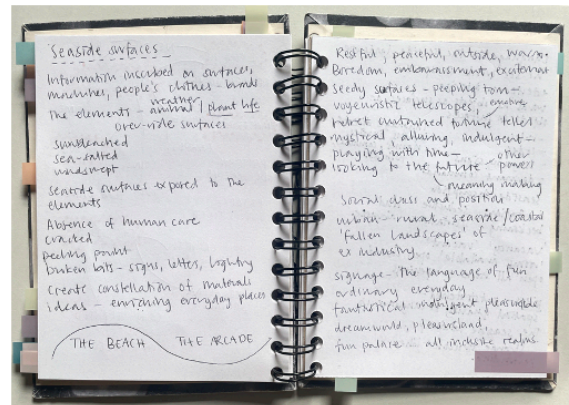 Seaside surfaces
Information inscribed on surfaces,
machines, people's clothes - brands
weather
The elements - animal / plant life
over-ride surfaces
sunbleached
sea-salted
windswept
Seaside surfaces exposed to the
elements
Absence of human care
crusted
peeling paint
broken bits - signs, letters, lighting
create constellation of materials
ideas - enriching everyday places
THE BEACH THE ARCADE
Restful, peaceful, outside, warm
Boredom, embarrassment, excitement
Seedy surfaces - peeping tom -
voyeuristic telescopes,
robot fortune teller
mystical, alluring, indulgent -
playing with time - other
looking to the future power
meaning making
Social class and position
urban - rural, seaside/coastal
'fallen landscapes' of
ex industry
signage - The language of fun
ordinary everyday
fantastical indulgent pleasurable
dreamworld, pleasureland,
fun palace all inclusive realms